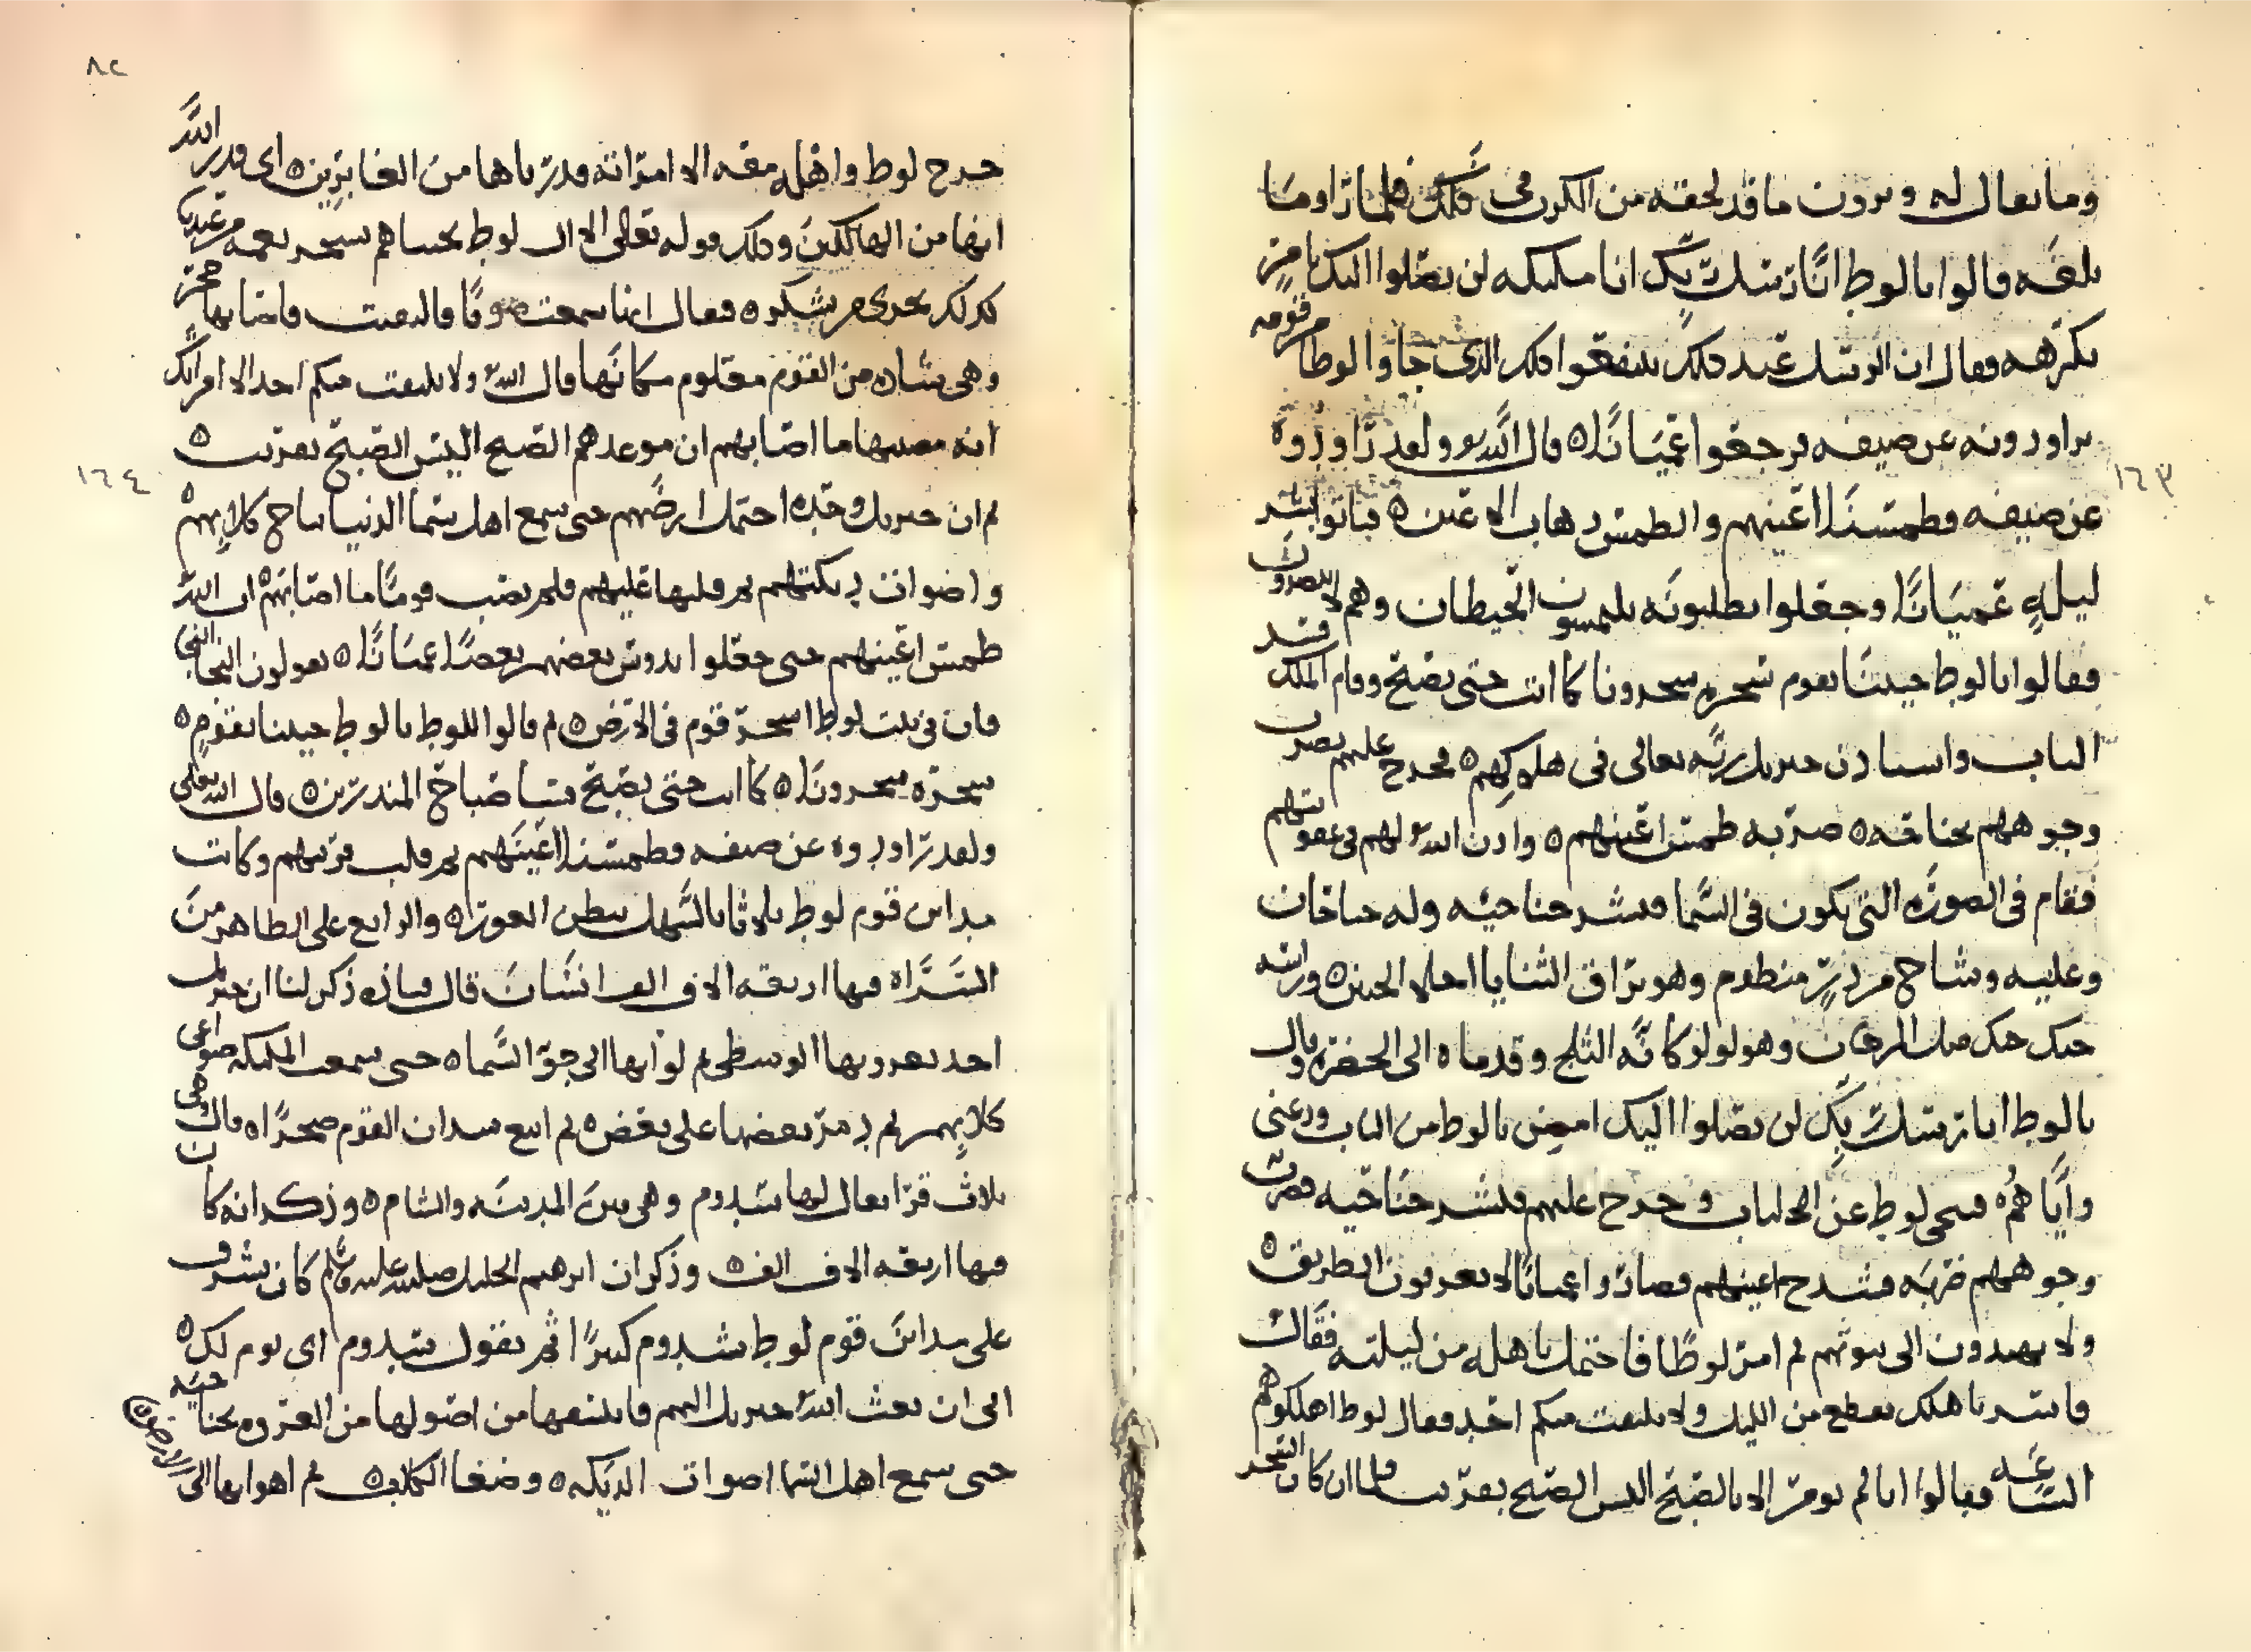 وما يقال له ويردون ما قد لحقه من الكرب في ذلك فلما راوا ما
يلقه قالوا يا لوط انا رسل ربك انا ملئكه لن يصلوا اليك بامر
تكرهه فقال ان الرسل عند ذلك يشفعوا ذلك الذي جاوا لوطا من قومه
يراودونه عن ضيفه فرجعوا عميانا قال الله ولقد راودوه
عن ضيفه فطمسنا اعينهم والطمس ذهاب الاعين فباتوا بشر
ليلة عميانا وجعلوا يطلبونه يلمسون الحيطان وهم لا يبصرون
فقالوا يا لوط جيتنا بقوم سحره سحرونا كما انت حتى يصبح وقام الملك
الباب واستاذن جبريل ربه تعالى في هلاكهم فخرج عليهم فضرب
وجوههم بجناحه ضربه طمس اعينهم واذن الله لهم في عقوبتهم
فقام في الصوره التي يكون في السما فنشر جناحيه وله جناحان
وعليه وشاح من در منظوم وهو براق الثنايا اجلا الجبين وراسه
حبك حبك مثل المرجان وهو لولو كانه الثلج وقدماه الى الخضره وقال
يا لوط انا رسل ربك لن يصلوا اليك امض يا لوط من الباب ودعني
واياهم فتنحى لوط عن الباب وخرج عليهم فنشر جناحيه فضرب
وجوههم ضربه فشدخ اعينهم فصاروا عميانا لا يعرفون الطريق
ولا يهتدون الى بيوتهم ثم امر لوطا فاحتمل باهله من ليلته فقال
فاسر باهلك بقطع من الليل ولا يلتفت منكم احد فقال لوط اهلكوهم
الساعه فقالوا انا لم نومر الا بالصبح اليس الصبح بقريب فلما ان كان السحر
١٦٣
٨٢
خرج لوط واهله معه الا امراته قدرناها من الغابرين اي قدر الله
انها من الهالكين وذلك قوله تعالى الا ال لوط نجيناهم بسحر نعمه من عندنا
كذلك نجزي من شكر فقال انها سمعت صوتا فالتفتت فاصابها حجر
وهي شاذه من القوم معلوم مكانها قال الله ولا يلتفت منكم احد الا امراتك
انه مصيبها ما اصابهم ان موعدهم الصبح اليس الصبح بقريب
ثم ان جبريل وحده احتمل ارضهم حتى سمع اهل سما الدنيا نباح كلابهم
واصوات ديكتهم ثم قلبها عليهم فلم يصب قوما ما اصابهم ان الله
طمس اعينهم حتى جعلوا يدوس بعضهم بعضا عميانا يقولون النجا النجا
فان في بيت لوط اسحر قوم في الارض ثم قالوا للوط يا لوط جيتنا بقوم
سحره سحرونا كما انت حتى يصبح فسا صباح المنذرين قال الله تعالى
ولقد راودوه عن ضيفه فطمسنا اعينهم ثم قلب قريتهم وكانت
مداين قوم لوط ثلاثا بالسهل ببطن الغور والرابع على الظاهر من
السراه فيها اربعه الاف الف انسان قال قتاده ذكر لنا ان جبريل
اخذ بعروتها الوسطى ثم لوا بها الى جو السما حتى سمعت الملئكه ضواغي
كلابهم ثم دمر بعضها على بعض ثم اتبع شذان القوم صخرا قال وهي
ثلاث قرا يقال لها سدوم وهي بين المدينه والشام وذكر انه كان
فيها اربعه الاف الف وذكر ان ابرهيم الخليل صلى الله عليه وسلم كان يشرف
على مداين قوم لوط سدوم كثيرا ثم يقول سدوم اي يوم لك
الى ان بعث الله جبريل اليهم فانتسفها من اصولها من العروه بجناحيه
حتى سمع اهل السما اصوات الديكه وضغا الكلاب ثم اهوا بها الى
الارض
١٦٤